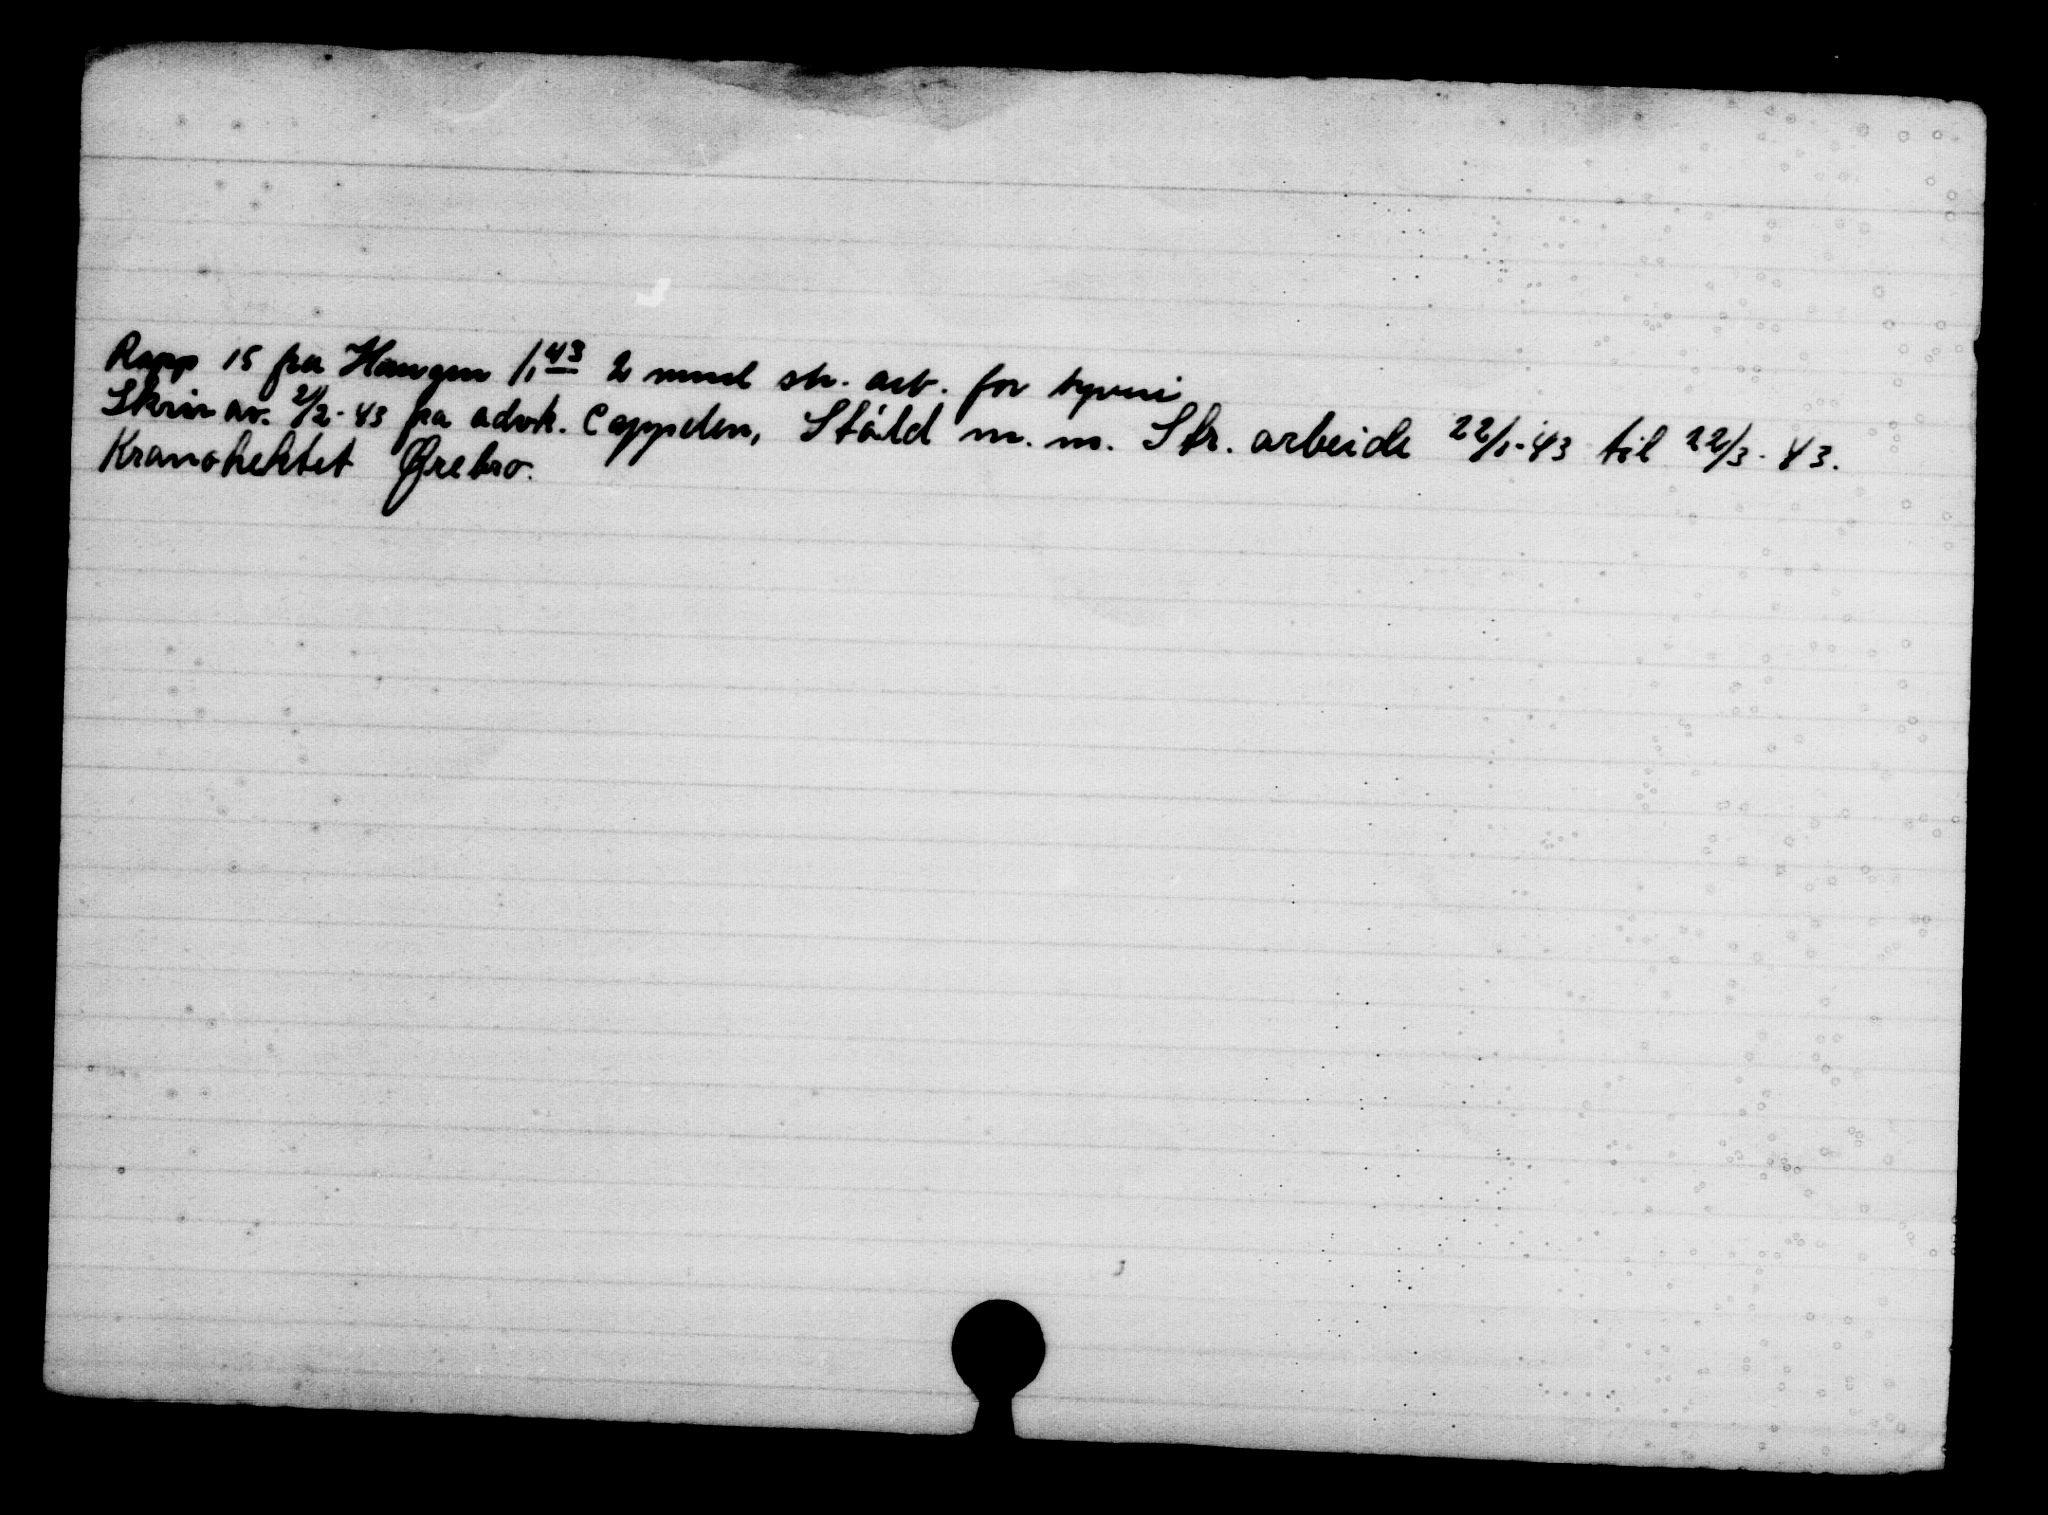 Rapp 15 fra Haugen 1/1 43 2 mnd str. arb. for tyveri
Skriv av. 2/2-43 fra advk. Cappelen, Stöld m. m. Str. arbeide 22/1-43 til 22/3-43.
Kronohektet Ørebro.